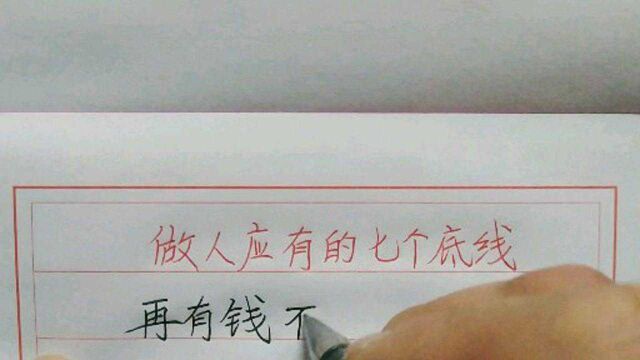 做人应有的七个底线
再有钱不